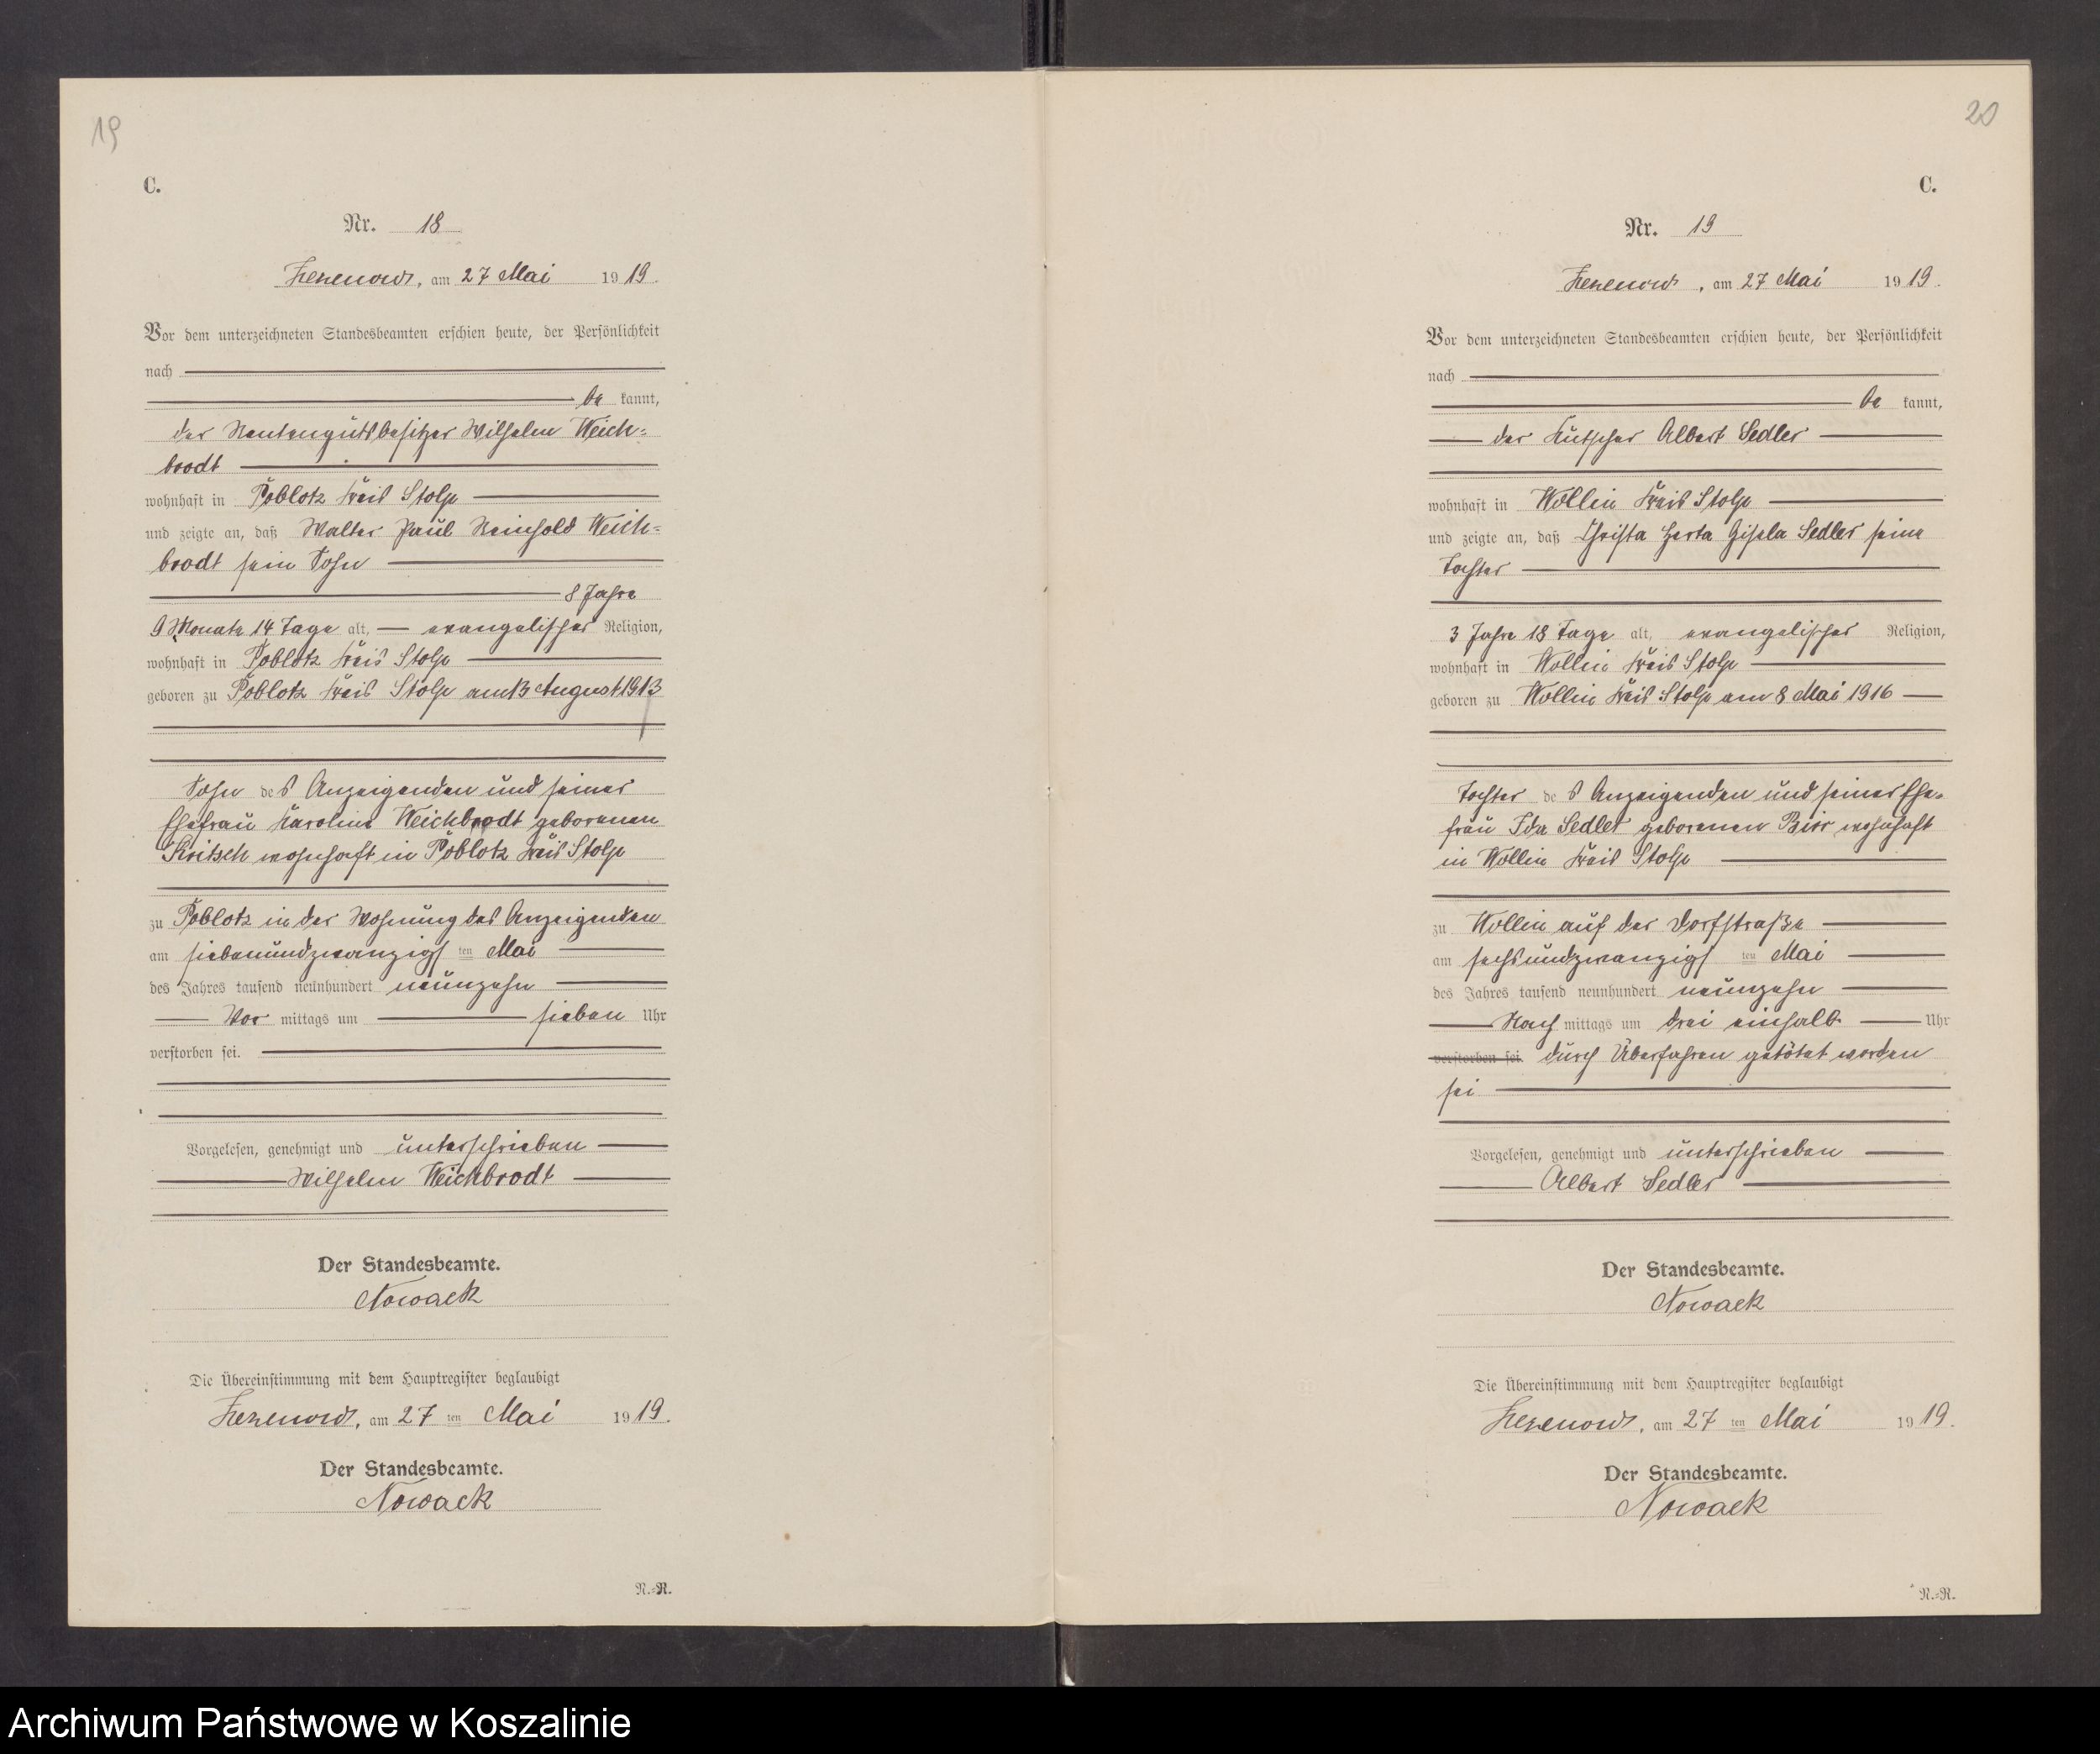 19
C.
Nr. 18
Zezenow, am 27 Mai 1919.
Vor dem unterzeichneten Standesbeamten erschien heute, der Persönlichkeit
nach
be kannt,
der Rentengutsbesitzer Wilhelm Weich-
brodt
wohnhaft in Poblotz Kreis Stolp
und zeigte an, daß Walter Paul Reinhold Weich-
brodt sein Sohn
8 Jahre
9 Monate 14 Tage alt, evangelischer Religion,
wohnhaft in Poblotz Kreis Stolp
geboren zu Poblotz Kreis Stolp am 13 August 1913
Sohn des Anzeigenden und seiner
Ehefrau Karoline Weichbrodt geborenen
Kritsch wohnhaft in Poblotz Kreis Stolp
zu Poblotz in der Wohnung des Anzeigenden
am siebenundzwanzigs ten Mai
des Jahres tausend neunhundert neunzehn
Vor mittags um sieben Uhr
verstorben sei.
Vorgelesen, genehmigt und unterschrieben
Wilhelm Weichbrodt
Der Standesbeamte.
Nowack
Die Übereinstimmung mit dem Hauptregister beglaubigt
Zezenow, am 27 ten Mai 1919.
Der Standesbeamte.
Nowack
N.=R.
20
C.
Nr. 19
Zezenow, am 27 Mai 1919.
Vor dem unterzeichneten Standesbeamten erschien heute, der Persönlichkeit
nach
be kannt,
der Kutscher Albert Sedler
wohnhaft in Wollin Kreis Stolp
und zeigte an, daß Christa Herta Gisela Sedler seine
Tochter
3 Jahre 18 Tage alt, evangelischer Religion,
wohnhaft in Wollin Kreis Stolp
geboren zu Wollin Kreis Stolp am 8 Mai 1916
Tochter des Anzeigenden und seiner Ehe-
frau Ida Sedler geborenen wohnhaft
in Wollin Kreis Stolp
zu Wollin auf der Dorfstraße
am sechsundzwanzigs ten Mai
des Jahres tausend neunhundert neunzehn
Nach mittags um drei einhalb Uhr
verstorben sei durch Überfahren getötet worden
sei
Vorgelesen, genehmigt und unterschrieben
Albert Sedler
Der Standesbeamte.
Nowack
Die Übereinstimmung mit dem Hauptregister beglaubigt
Zezenow, am 27 ten Mai 1919.
Der Standesbeamte.
Nowack
N.=R.
Archiwum Państwowe w Koszalinie